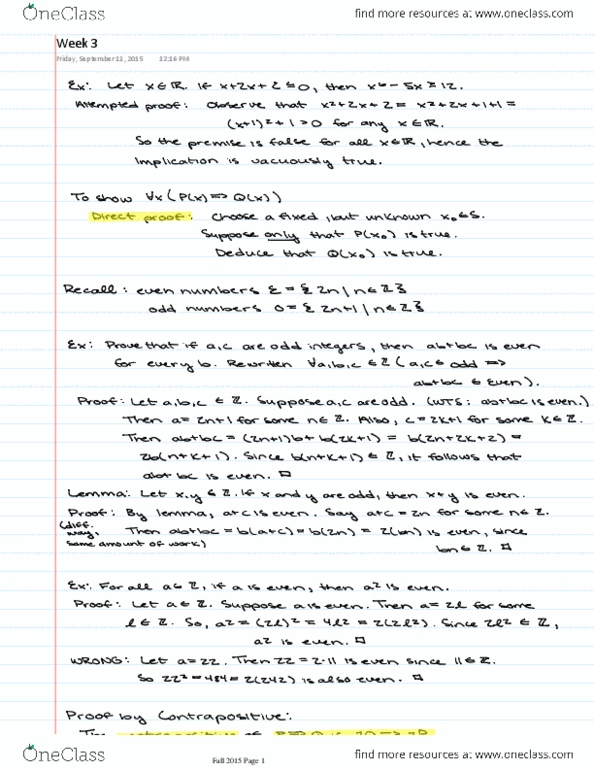 OneClass
find more resources at www.oneclass.com
Week 3
Friday, September 11, 2015 12:16 PM
Ex: Let x∈ℝ. If x+2x+2≤0, then x⁶-5x≥12.
Attempted proof: Observe that x²+2x+2 = x²+2x+1+1 =
(x+1)²+1>0 for any x∈ℝ.
So the premise is false for all x∈ℝ, hence the
implication is vacuously true.
To show ∀x(P(x)⇒Q(x))
Direct proof: Choose a fixed, but unknown x₀∈S.
Suppose only that P(x₀) is true.
Deduce that Q(x₀) is true.
Recall: even numbers E={2n|n∈ℤ}
odd numbers O={2n+1|n∈ℤ}
Ex: Prove that if a,c are odd integers, then ab+bc is even
for every b. Rewritten ∀a,b,c∈ℤ(a,c∈odd ⇒
ab+bc∈Even).
Proof: Let a,b,c∈ℤ. Suppose a,c are odd. (WTS: ab+bc is even.)
Then a=2n+1 for some n∈ℤ. Also, c=2k+1 for some k∈ℤ.
Then ab+bc=(2n+1)b+b(2k+1)=b(2n+2k+2)=
2b(n+k+1). Since b(n+k+1)∈ℤ, it follows that
ab+bc is even. □
Lemma: Let x,y∈ℤ. If x and y are odd, then x+y is even.
Proof: By lemma, a+c is even. Say a+c=2n for some n∈ℤ.
(diff. way, same amount of work) Then ab+bc=b(a+c)=b(2n)=2(bn) is even, since
bn∈ℤ. □
Ex: For all a∈ℤ, if a is even, then a² is even.
Proof: Let a∈ℤ. Suppose a is even. Then a=2l for some
l∈ℤ. So, a²=(2l)²=4l²=2(2l²). Since 2l²∈ℤ,
a² is even. □
WRONG: Let a=22. Then 22=2·11 is even since 11∈ℤ.
So 22²=484=2(242) is also even. □
Proof by Contrapositive:
OneClass
Fall 2015 Page 1
find more resources at www.oneclass.com